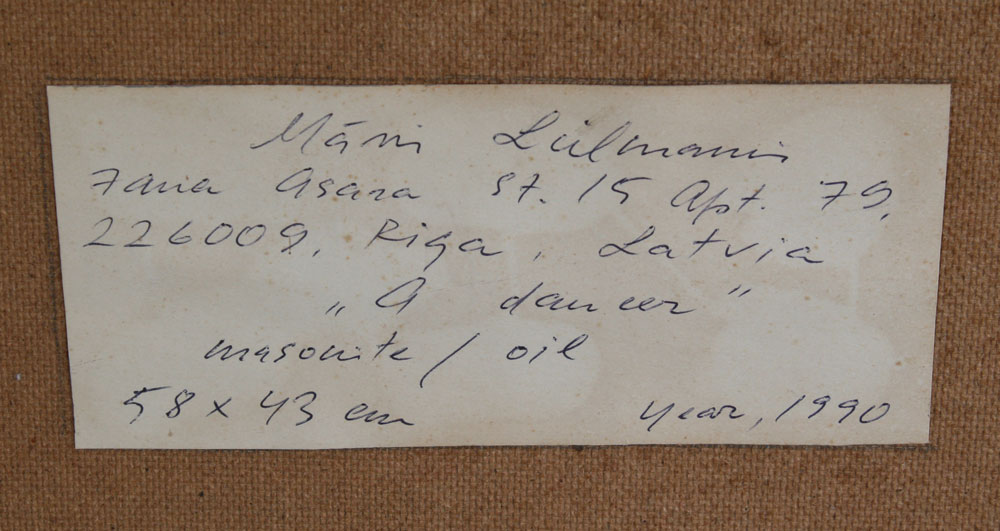 Māris Lielmanis
Jana Asara st. 15 Apt. 79,
226009, Riga, Latvia
„A dancer”
masonite / oil
58 x 43 cm year, 1990